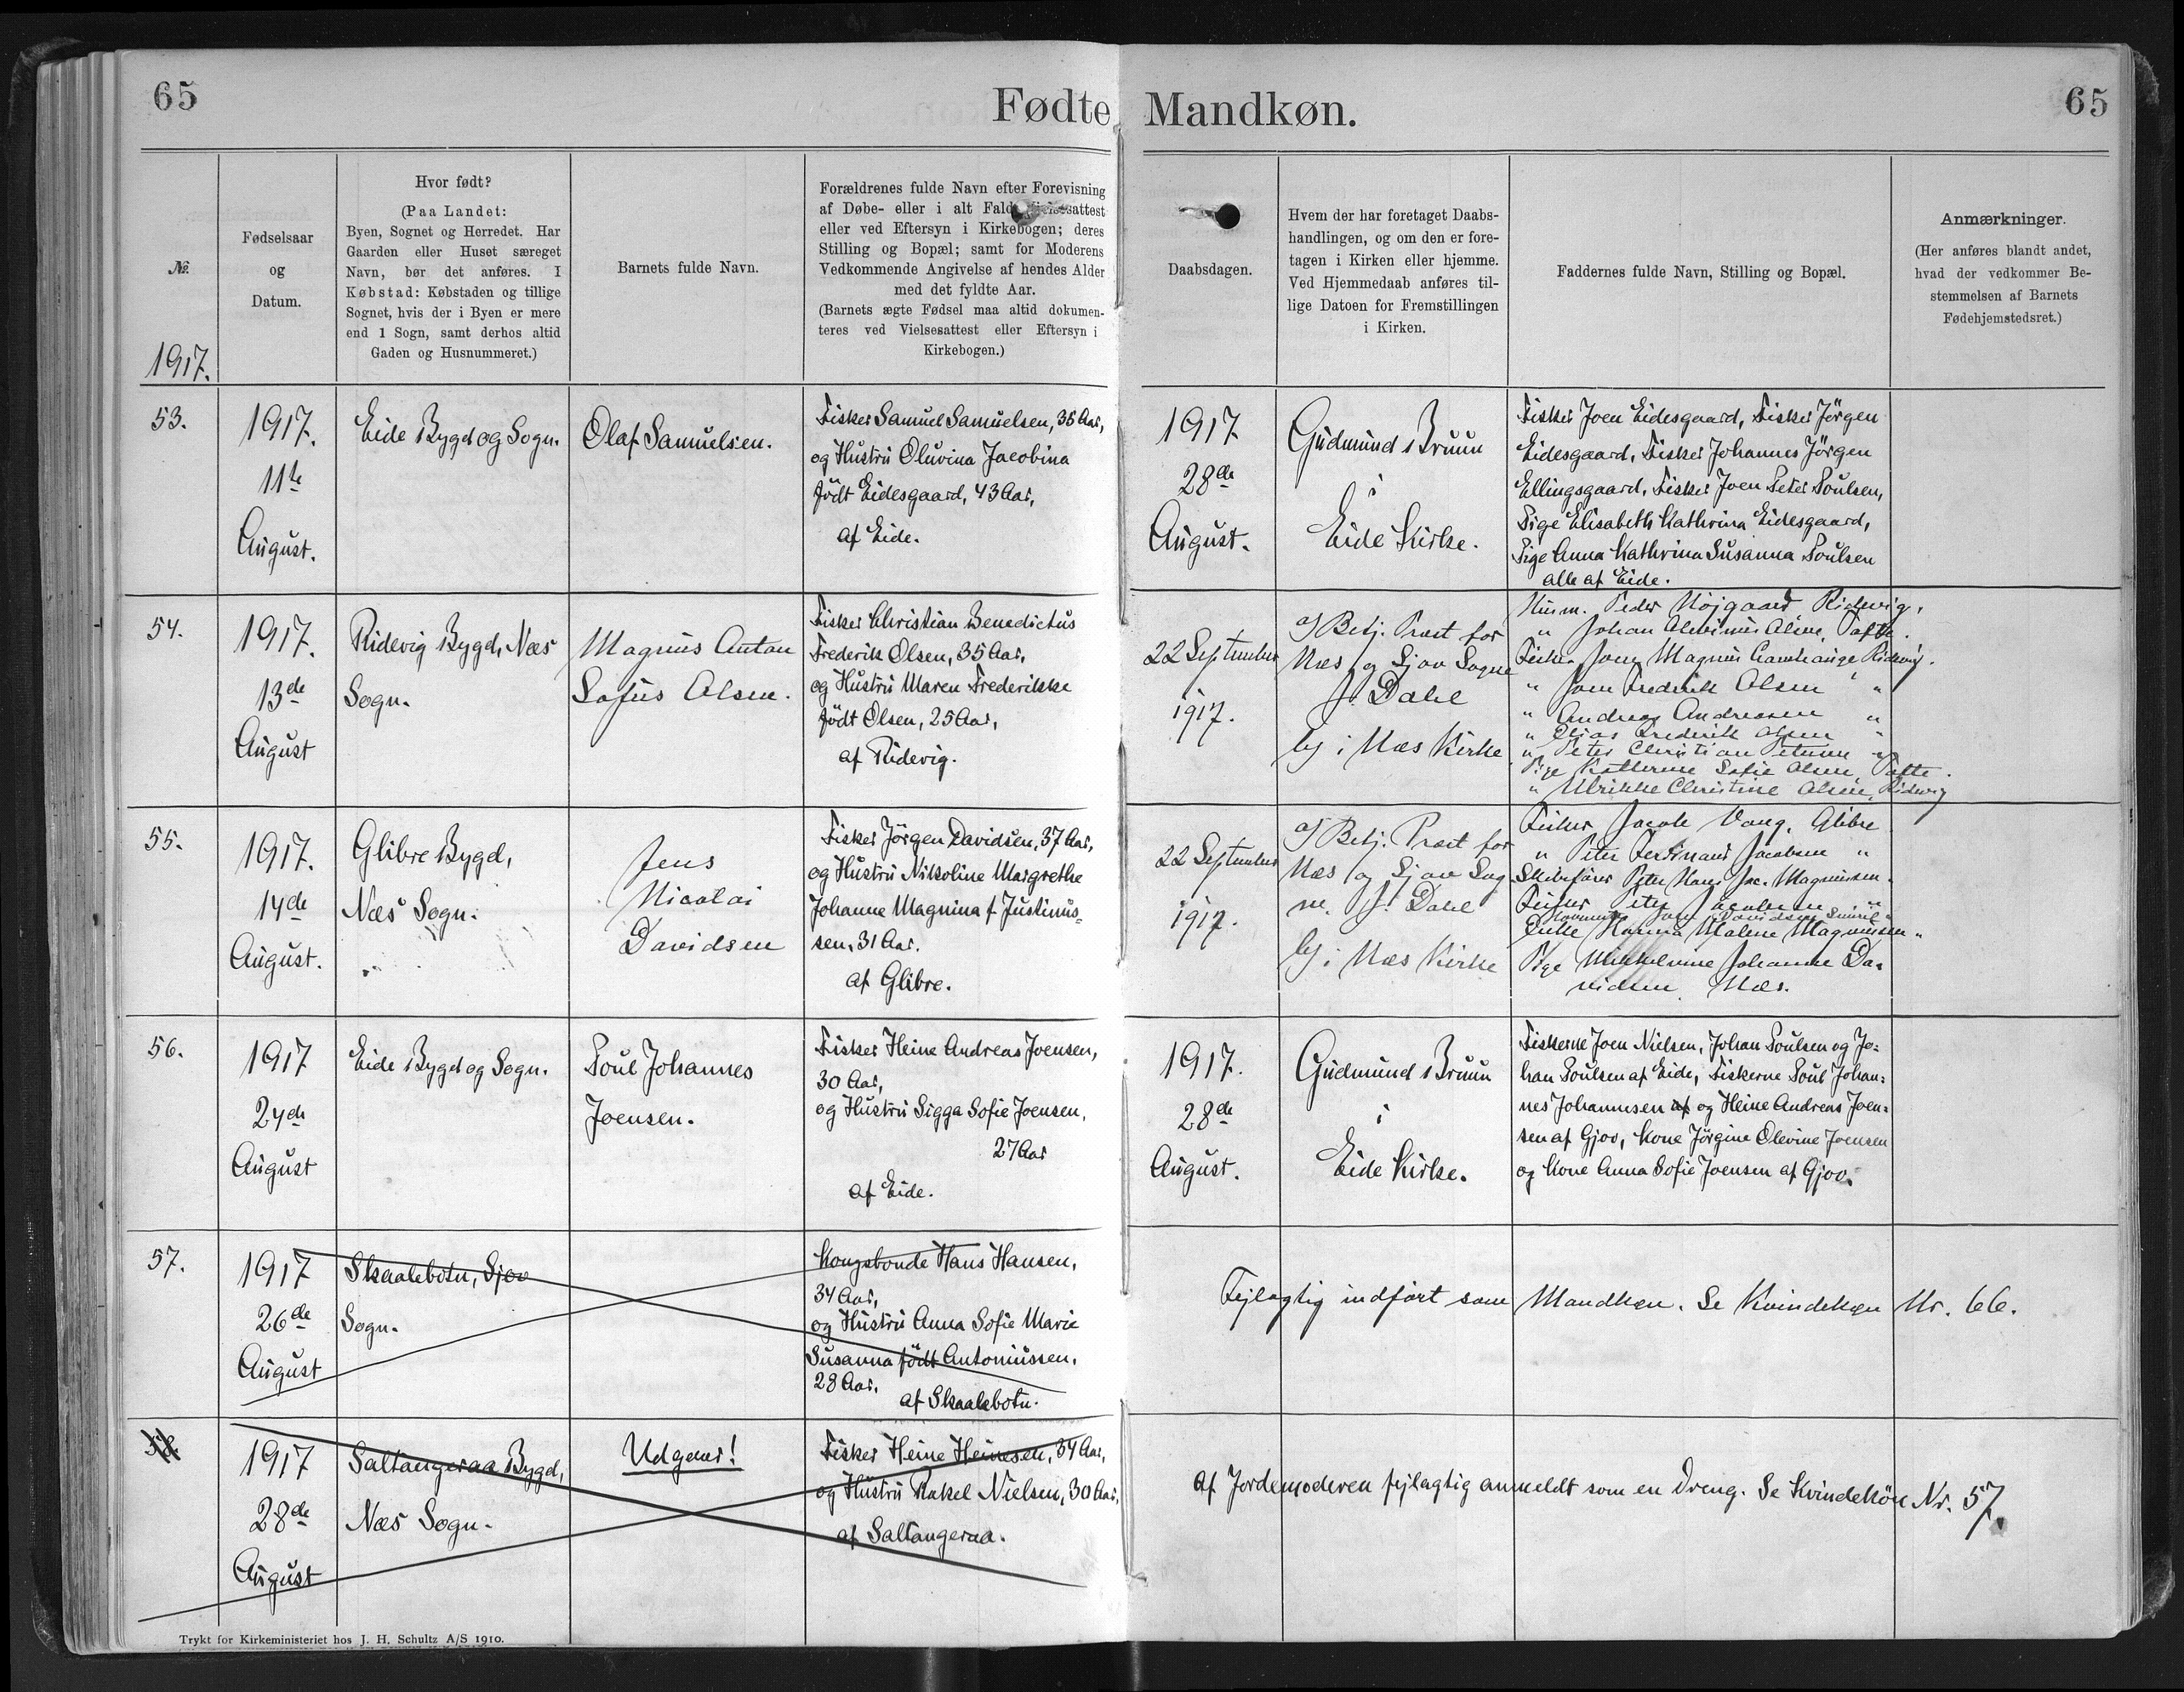 65
Fødte Mandkøn.
65
№
1917.
Fødselsaar
og
Datum.
Hvor født?
(Paa Landet:
Byen, Sognet og Herredet. Har
Gaarden eller Huset særeget
Navn, bør det anføres. I
Købstad: Købstaden og tillige
Sognet, hvis der i Byen er mere
end 1 Sogn, samt derhos altid
Gaden og Husnummeret.)
Barnets fulde Navn.
Forældrenes fulde Navn efter Forevisning
af Døbe- eller i alt Fald
eller ved Eftersyn i Kirkebogen; deres
Stilling og Bopæl; samt for Moderens
Vedkommende Angivelse af hendes Alder
med det fyldte Aar.
(Barnets ægte Fødsel maa altid dokumen-
teres ved Vielsesattest eller Eftersyn i
Kirkebogen.)
Daabsdagen.
Hvem der har foretaget Daabs-
handlingen, og om den er fore-
tagen i Kirken eller hjemme.
Ved Hjemmedaab anføres til-
lige Datoen for Fremstillingen
i Kirken.
Faddernes fulde Navn, Stilling og Bopæl.
Anmærkninger.
(Her anføres blandt andet,
hvad der vedkommer Be-
stemmelsen af Barnets
Fødehjemstedsret.)
53.
1917.
11te
August.
Eide Bygd og Sogn.
Olaf Samuelsen.
Fisker Samuel Samuelsen, 36 Aar,
og Hustru Oluvina Jacobina
født Eidesgaard, 43 Aar,
af Eide.
1917
28de
August.
Gudmund Bruun
i
Eide Kirke.
Fisker Joen Eidesgaard, Fisker Jörgen
Eidesgaard, Fisker Johannes Jörgen
Ellingsgaard, Fisker Joen Peter Poulsen,
Pige Elisabeth Kathrina Eidesgaard,
Pige Anna Kathrina Susanna Poulsen
alle af Eide.
54.
1917.
13de
August
Ridevig Bygd, Næs
Sogn.
Magnus Anton
Sofus Olsen.
Fisker Christian Benedictus
Frederik Olsen, 35 Aar,
og Hustru Maren Frederikke
født Olsen, 25 Aar,
af Ridevig.
22 September
1917.
a) Betj. Præst for
Næs og Sjov Sogne
J. Dahl
b) i Næs Kirke
Husm. Peder Højgaard Ridevig,
" Johan Olsen, Tofte.
Fisker Joen Magnus Ridevig.
" Joen Frederik Olsen "
" Andreas Andreasen "
" Elias Frederik Olsen "
" Peter Christian Petersen "
Pige Katherine Sofie Olsen, Tofte.
" Ulrikke Christine Olsen, Ridevig
55.
1917.
14de
August.
Glibre Bygd,
Næs Sogn.
Jens
Nicolai
Davidsen
Fisker Jörgen Davidsen, 37 Aar,
og Hustru Nikoline Margrethe
Johanne Magnina f. Justinus-
sen, 31 Aar.
af Glibre.
22 September
1917.
a) Betj. Præst for
Næs og Sjov Sog
ne. J. Dahl
b) i Næs Kirke
Fisker Jacob Vang, Glibre
" Peter Ferdinand Jacobsen "
Skibsfører Peter Hans Jac. Magnussen.
Fisker Peter Jacobsen "
Davidsen
Enke Hanna Malene Magnussen "
Pige Mikkelvine Johanne Da-
vidsen Næs.
56.
1917
24de
August
Eide Bygd og Sogn.
Poul Johannes
Joensen.
Fisker Heine Andreas Joensen,
30 Aar,
og Hustru Sigga Sofie Joensen,
27 Aar
af Eide.
1917.
28de
August.
Gudmund Bruun
i
Eide Kirke.
Fiskerne Joen Nielsen, Johan Poulsen og Jo-
han Poulsen af Eide, Fiskerne Poul Johan-
nes Johannesen af og Heine Andreas Joen-
sen af Gjov, Kone Jörgine Olevine Joensen
og Kone Anna Sofie Joensen af Gjov.
57.
1917
26de
August
Skaalebotn, Sjov
Sogn.
Kongsbonde Hans Hansen,
34 Aar,
og Hustru Anna Sofie Marie
Susanna født Antoniussen,
28 Aar,
af Skaalebotn.
Fejlagtig indført som Mandkøn. Se Kvindekøn Nr. 66.
58.
1917
28de
August
Saltangeraa Bygd,
Næs Sogn.
Udgaar!
Fisker Heine Heinesen, 34 Aar,
og Hustru Rakel Nielsen, 30 Aar,
af Saltangeraa.
Af Jordemoderen fejlagtig anmeldt som en Dreng. Se Kvindekön Nr. 57.
Trykt for Kirkeministeriet hos J. H. Schultz A/S 1910.